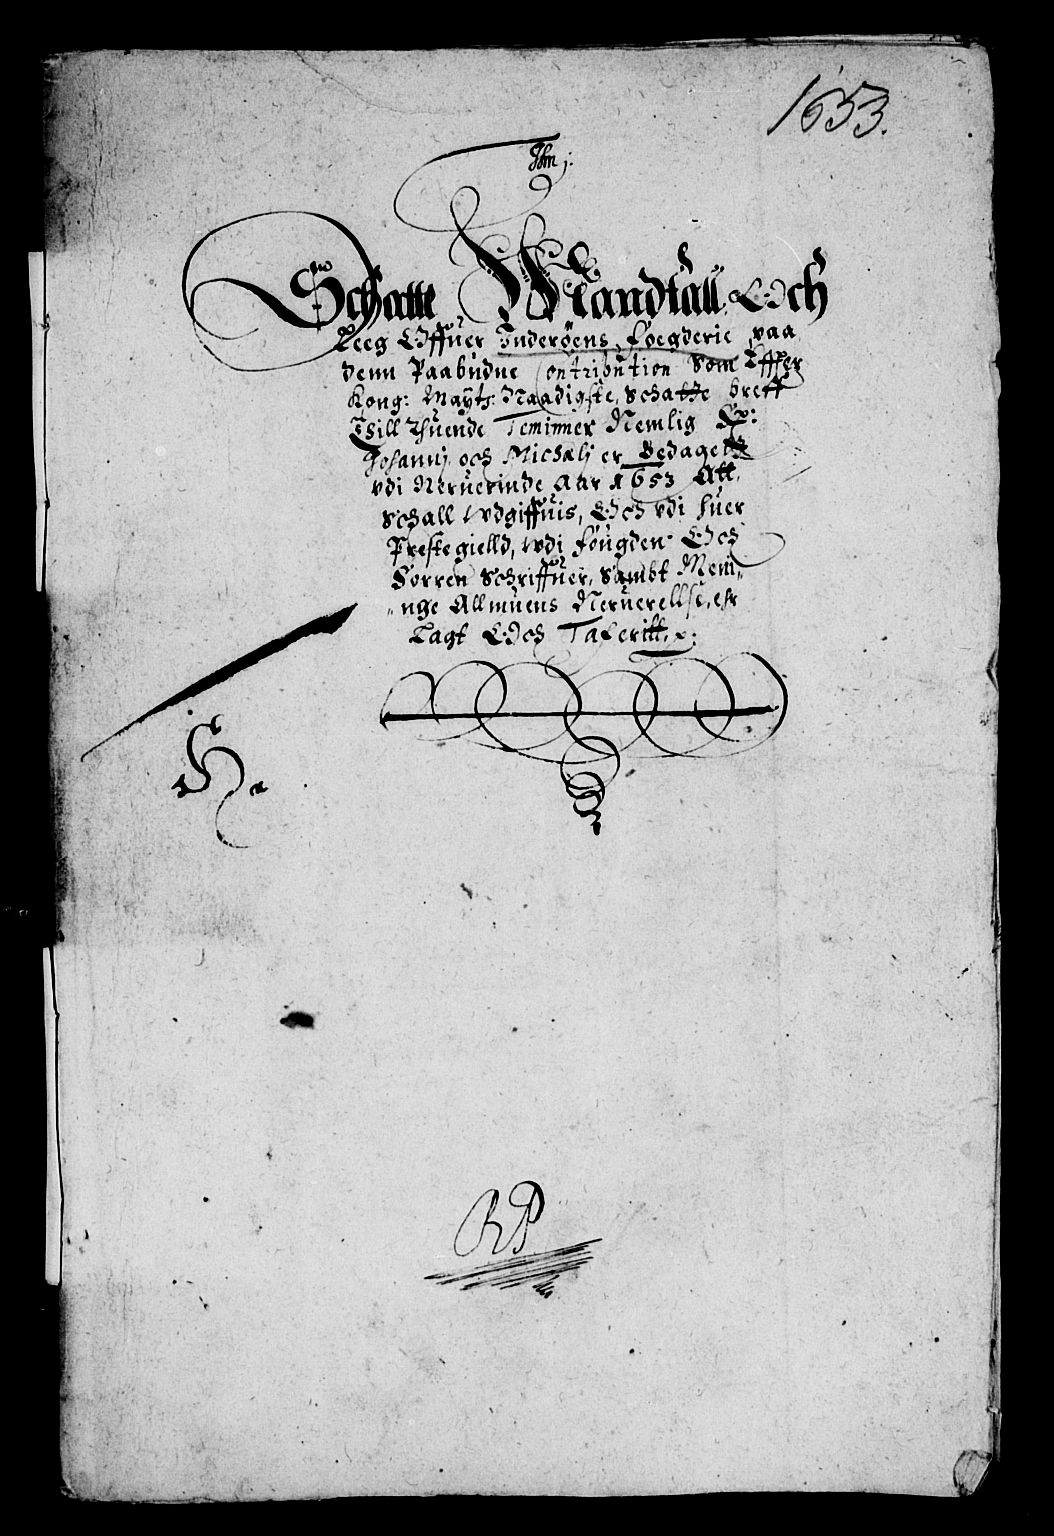 1653.
Schatte Mandtall Och
Leeg Offuer Inderöens foegderie, paa
denn Paabudne Contribution Som Effter
Kong: Maytz: Naadigste, Schatte breff
Thill Thuende Terminner Nemlig
Johannj och Michaelj er Bedagett
vdi Neruerinde Aar 1653 All
Schall vdgiffuis, Och vdi huer
Prestegielld, vdi fougden Och
Sorren Schriffuer, Sambt Mem„
„nge Allmuens Neruerellse, ehr
Tagt Och Taxeritt,
RP